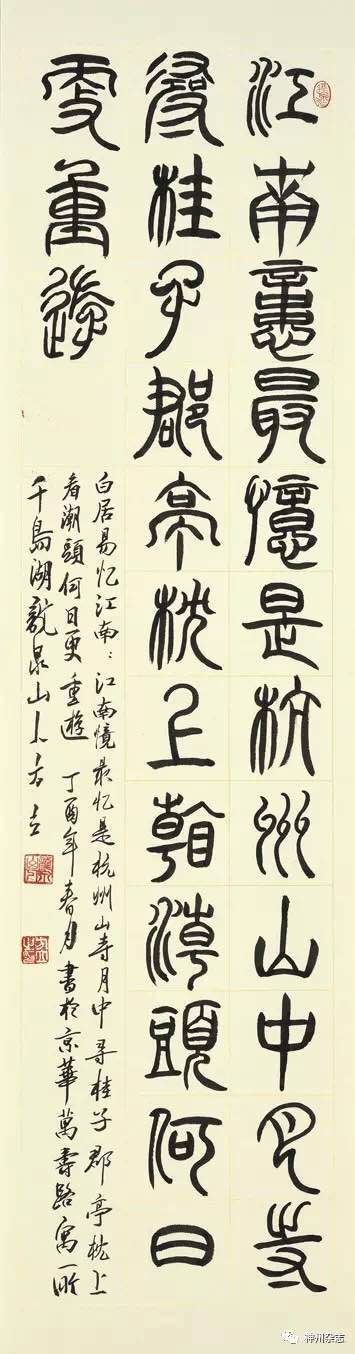 江南憶最憶是杭州山中月寺
尋桂子郡亭枕上看潮頭何日
更重遊
白居易忆江南：江南憶最忆是杭州山寺月中尋桂子郡亭枕上
看潮頭何日更重遊 丁酉年春月書於京華萬壽路寓所
千島湖龍泉山人方
神州杂志